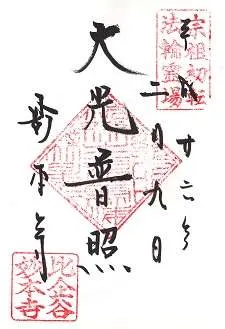 宗祖初転
法輪霊場
平成廿六年
二月九日
大光普照
妙本寺
比企谷
妙本寺